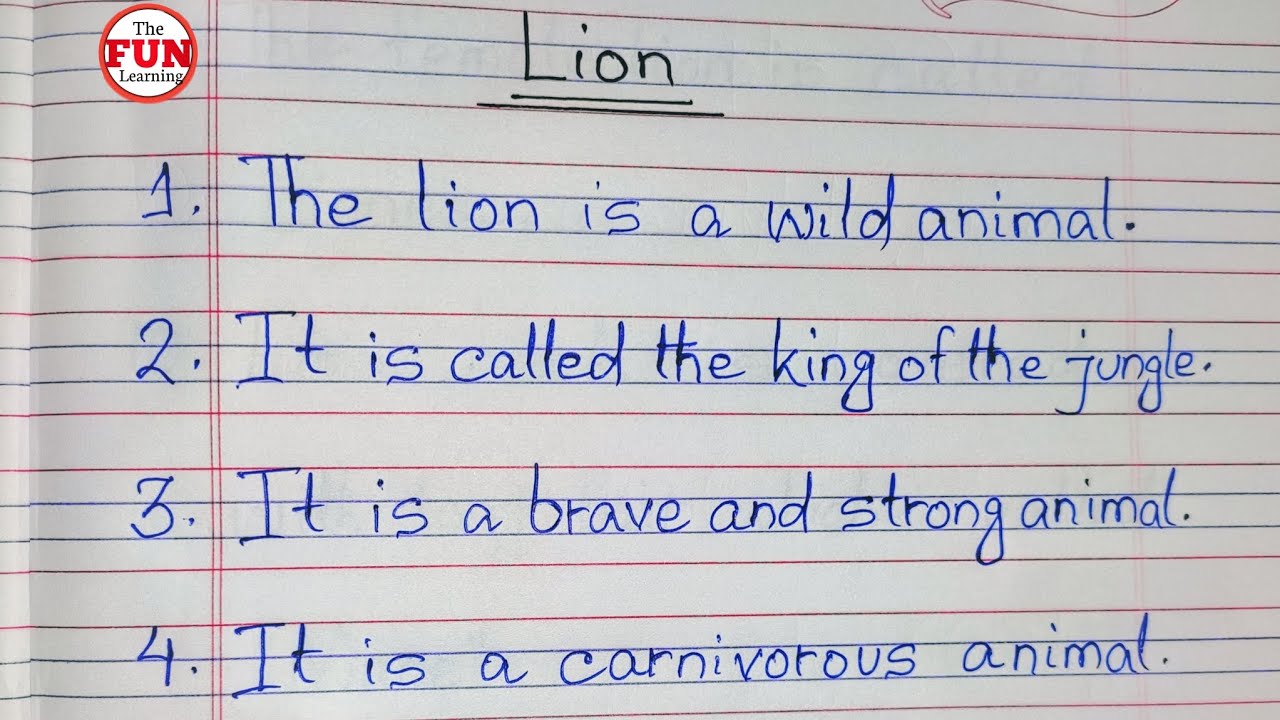 The
FUN
Learning
Lion
1. The lion is a wild animal.
2. It is called the king of the jungle.
3. It is a brave and strong animal.
4. It is a carnivorous animal.